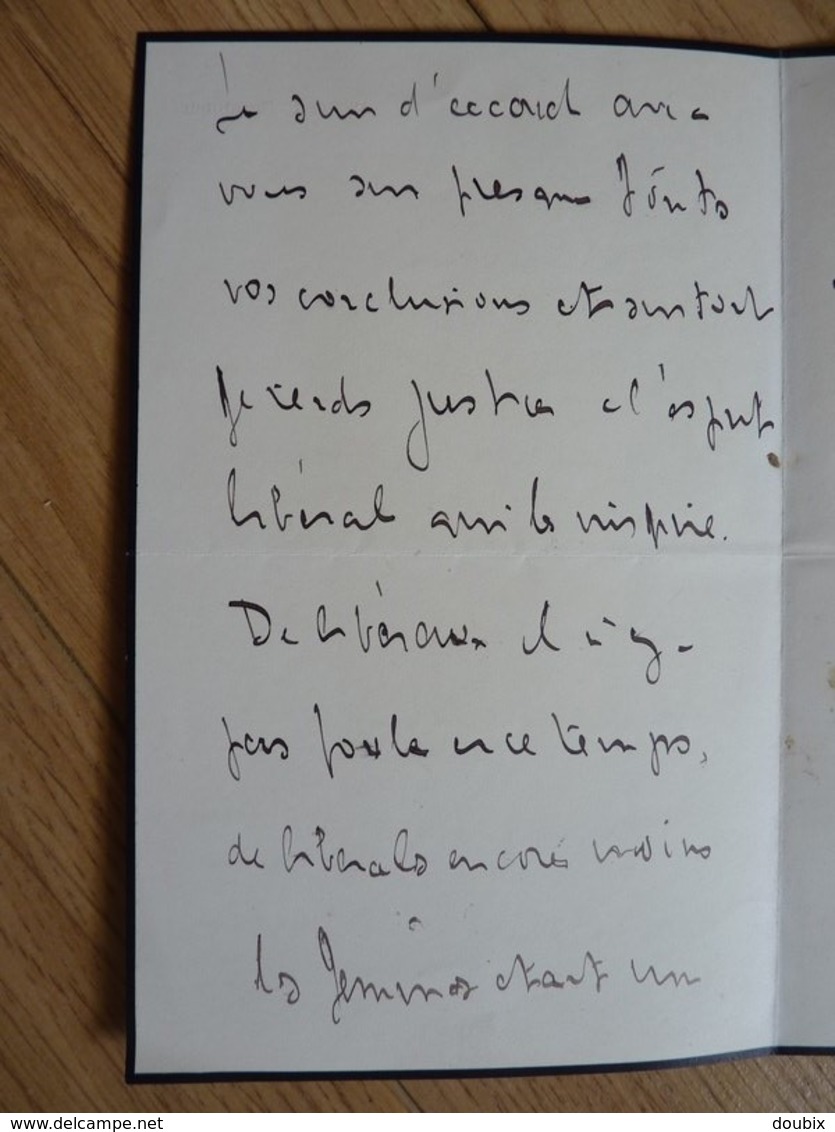 Je suis d'accord avec
vous sur presque toutes
vos conclusions et surtout
je rends justice à l'esprit
libéral qui les inspire.
De libéraux il n'y a
pas foule en ce temps,
de libérales encore moins
les femmes étant un
www.delcampe.net
doubix